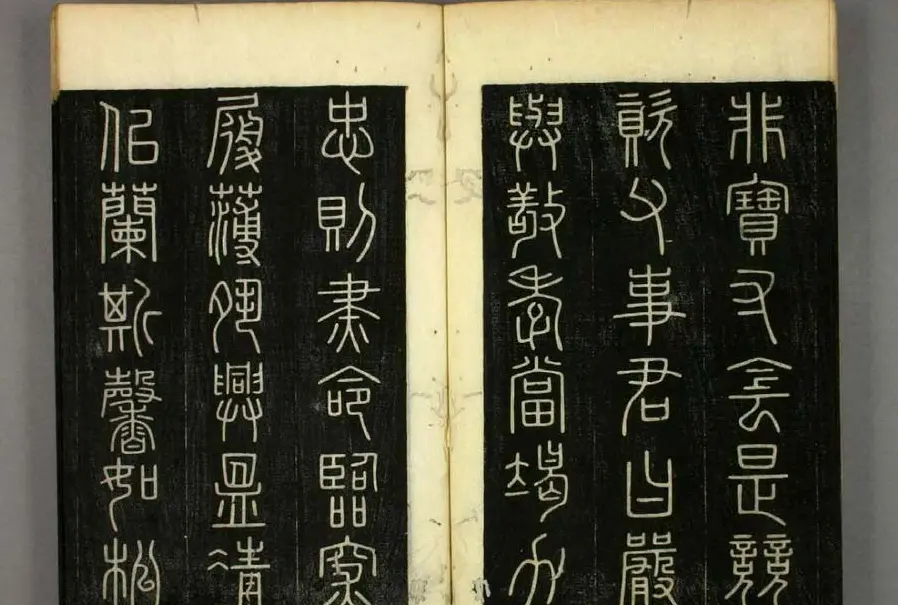 非寶寸陰是競
資父事君曰嚴
與敬孝當竭力
忠則盡命臨深
履薄夙興溫清
似蘭斯馨如松